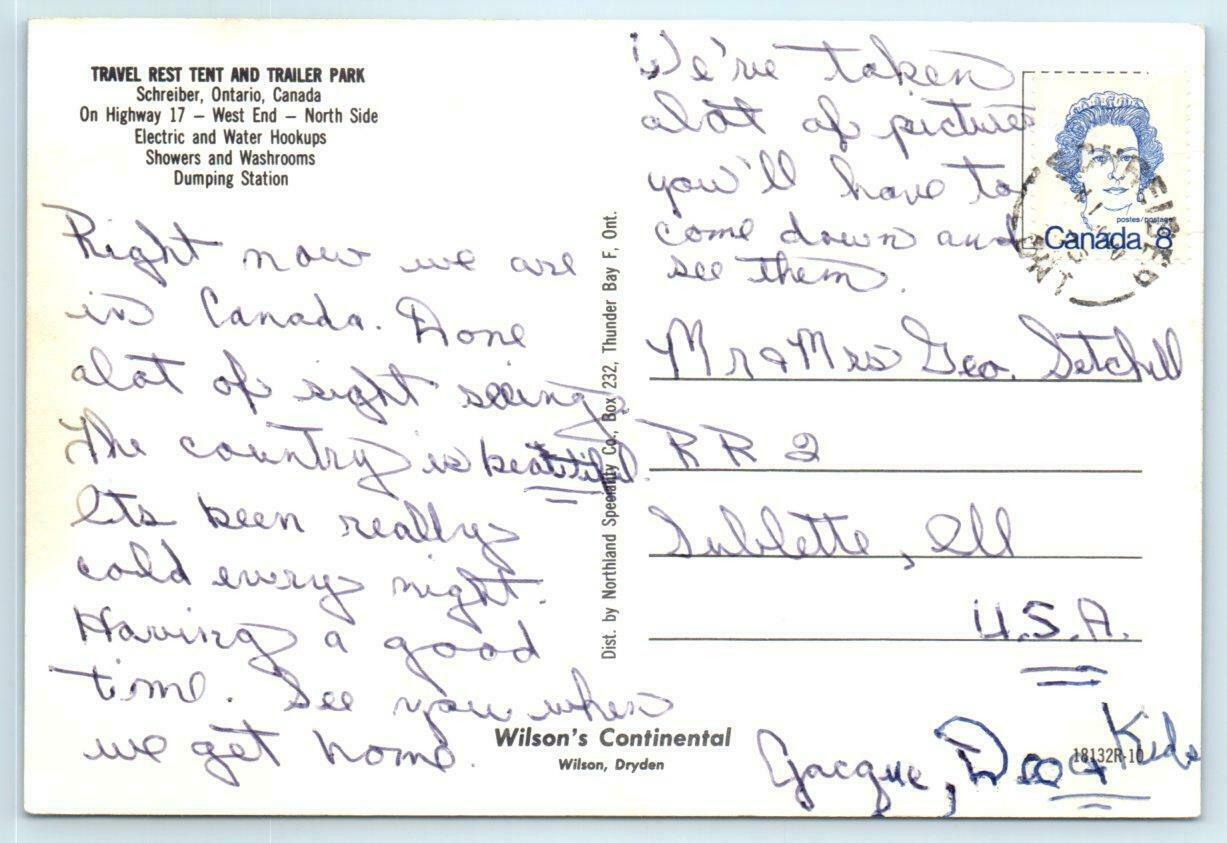 TRAVEL REST TENT AND TRAILER PARK
Schreiber, Ontario, Canada
On Highway 17 – West End – North Side
Electric and Water Hookups
Showers and Washrooms
Dumping Station
Right now we are
in Canada. Done
alot of sight seeing.
The country is beautiful.
Its been really
cold every night.
Having a good
time. See you when
we get home.
We've taken
alot of pictures
you'll have to
come down and
see them.
postes/postage
Canada 8
Mr & Mrs Geo. Setchell
RR 2
Sublette, Ill
U.S.A.
Jacque, Dee & Kids
Dist. by Northland Specialty Co., Box 232, Thunder Bay F, Ont.
Wilson's Continental
Wilson, Dryden
18132R-10